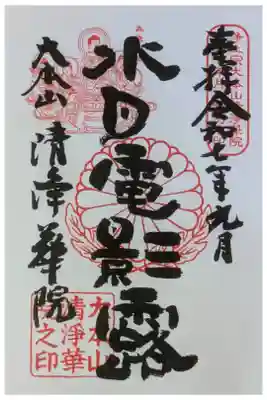 奉拝令和七年九月
水月電影露
大本山
清浄華院
大本山
清淨華
院之印